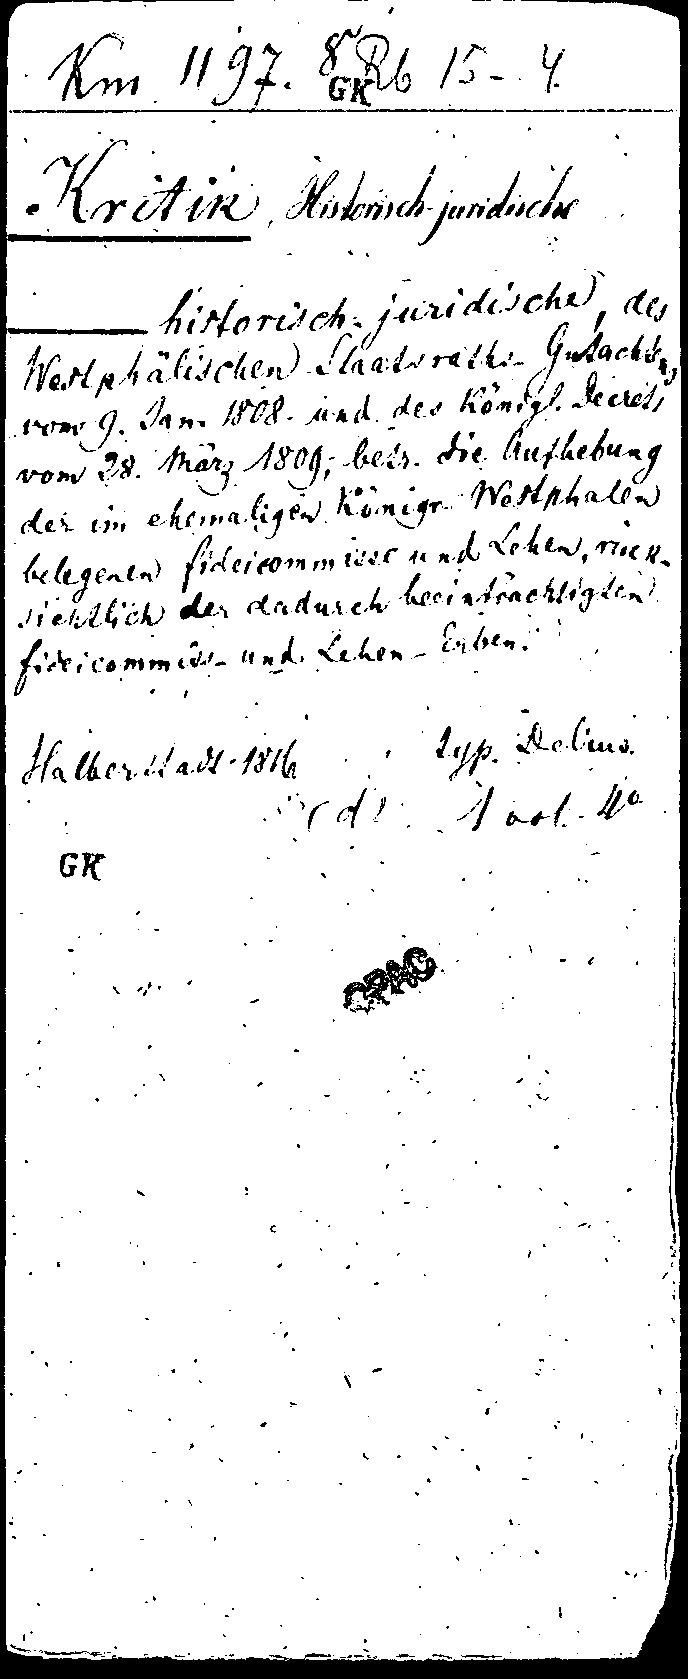 Km 1197. 8° Rb 15 - 4.
GK
Kritik, Historisch-juridische
——— historisch-juridische, des
Westphälischen Staatsraths-Gutachtens
vom 9. Jan. 1808. und des Königl. Decrets
vom 28. März 1809, betr. die Aufhebung
der im ehemaligen Königr. Westphalen
belegenen fideicommisse und Lehen, rück-
sichtlich der dadurch beeinträchtigten
fideicommiss- und Lehen-Erben.
Halberstadt 1816 typ. Delius.
(d) 1 vol. 4°
GK